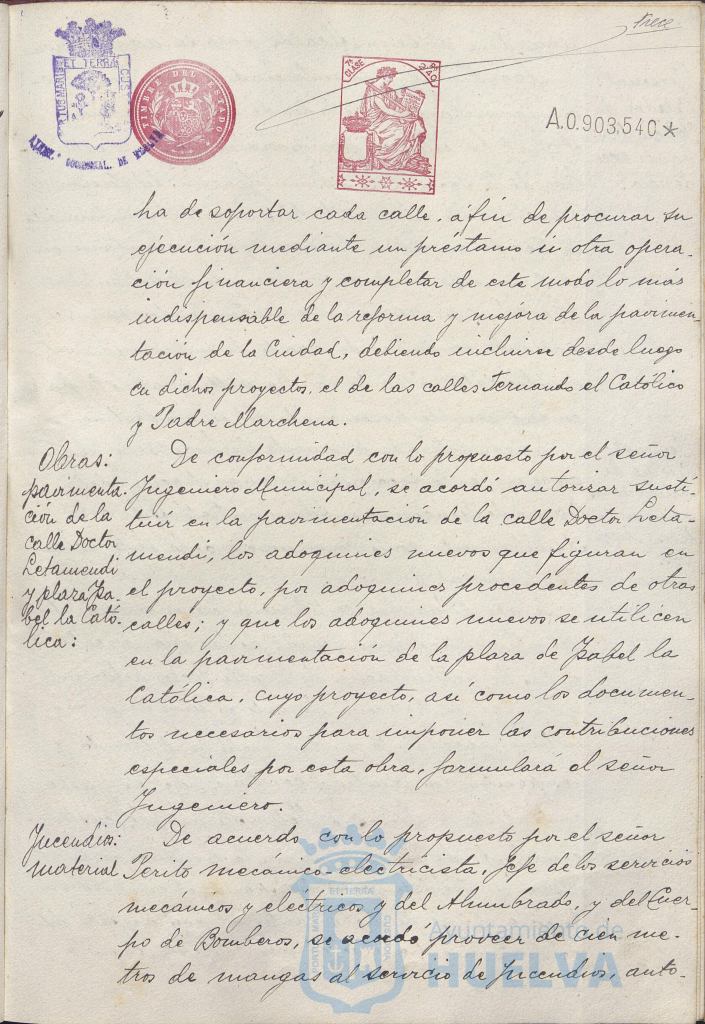 Trece
ET TERRA
TIMBRE DEL ESTADO
7ª CLASE
2'40
A.0.903,540*
ha de soportar cada calle, á fin de procurar su
ejecución mediante un préstamo ú otra opera-
ción financiera y completar de este modo lo más
indispensable de la reforma y mejora de la pavimen-
tación de la Ciudad, debiendo incluirse desde luego
en dichos proyectos, el de las calles Fernando el Católico
y Padre Marchena.
Obras:
pavimenta-
ción de la
calle Doctor
Letamendi
y plaza Isa-
bel la Cató-
lica:
De conformidad con lo propuesto por el señor
Ingeniero Municipal, se acordó autorizar susti-
tuir en la pavimentación de la calle Doctor Leta-
mendi, los adoquines nuevos que figuran en
el proyecto, por adoquines procedentes de otras
calles; y que los adoquines nuevos se utilicen
en la pavimentación de la plaza de Isabel la
Católica, cuyo proyecto, así como los documen-
tos necesarios para imponer las contribuciones
especiales por esta obra, formulará el señor
Ingeniero.
Incendios:
material
De acuerdo con lo propuesto por el señor
Perito mecánico-electricista, Jefe de los servicios
mecánicos y eléctricos y del Alumbrado, y del Cuer-
po de Bomberos, se acordó proveer de cien me-
tros de mangas al servicio de Incendios, auto-
Ayuntamiento de
HUELVA